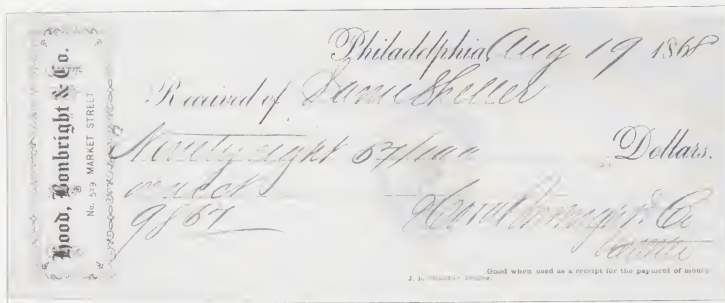 Hood, Bonbright & Co.
No. 529 MARKET STREET
Philadelphia, Aug 19 1868
Received of Sheller
Ninety eight 67/100 Dollars.
9867
Co
Good when used as a receipt for the payment of money.